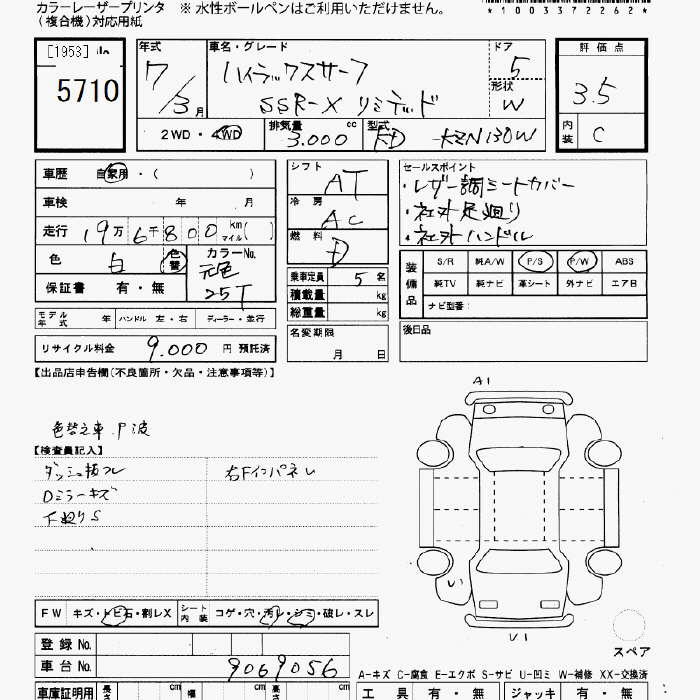 カラーレーザープリンタ ※ 水性ボールペンはご利用いただけません。
(複合機)対応用紙
*1003372262*
[1953]
5710
年式 7/3月
車名・グレード
ハイラックスサーフ
SSR-X リミテッド
ドア 5
形状 W
評価点 3.5
内装 C
2WD・4WD
排気量 3.000 cc
型式 KD-KZN130W
車歴 自家用・( )
車検 年 月
走行 19万6千800 km マイル( )
色 白 色替
カラーNo. 元色 25T
保証書 有・無
シフト AT
冷房 AC
燃料 D
乗車定員 5 名
積載量 kg
総重量 kg
名変期限 月 日
セールスポイント
・レザー調シートカバー
・社外足廻り
・社外ハンドル
装備品
S/R 純A/W P/S P/W ABS
純TV 純ナビ 革シート 外ナビ エアB
ナビ型番:
後日品
モデル年式 年 ハンドル 左・右 ディーラー・並行
リサイクル料金 9.000 円 預託済
【出品店申告欄(不良箇所・欠品・注意事項等)】
色替え車
【検査員記入】
Dミラーキズ
FW キズ・トビ石・割レX シート内装 コゲ・穴・汚レ・シミ・破レ・スレ
登録No.
車台No. 9069056
車庫証明用 長さ cm 幅 cm 高さ cm
A1
U1
スペア
A-キズ C-腐食 E-エクボ S-サビ U-凹ミ W-補修 XX-交換済
工具 有・無 ジャッキ 有・無